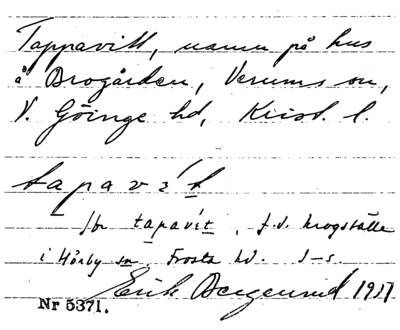 Tappavitt, namn på hus
å Brogården, Verums sn,
V. Göinge hd, Krist. l.
tapavít
Jbr tapavít, f.d. krogställe
i Hörby sn, Frosta hd. I-s.
Erik Abegunrid 1927
Nr 5371.